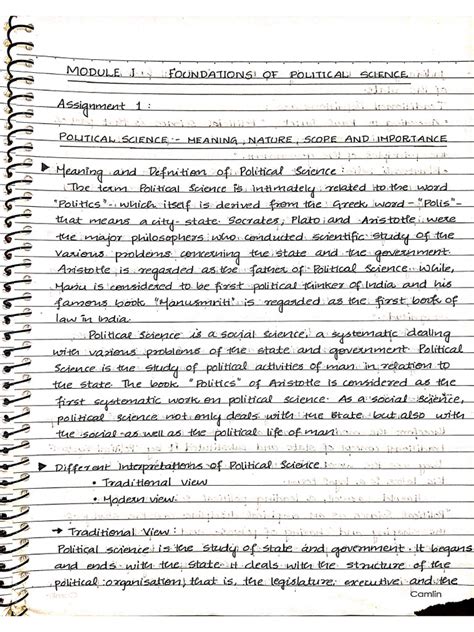 MODULE 1 FOUNDATIONS OF POLITICAL SCIENCE
Assignment 1 :
POLITICAL SCIENCE - MEANING, NATURE, SCOPE AND IMPORTANCE
▶ Meaning and Definition of Political Science :
The term Political Science is intimately related to the word
"Politics" which itself is derived from the Greek word - "Polis" -
that means a city-state. Socrates, Plato and Aristotle were
the major philosophers who conducted scientific study of the
various problems concerning the state and the government.
Aristotle is regarded as the father of Political Science. While,
Manu is considered to be first political thinker of India and his
famous book "Manusmriti" is regarded as the first book of
law in India.
Political Science is a social science, a systematic dealing
with various problems of the state and government. Political
Science is the study of political activities of man in relation to
the state. The book "Politics" of Aristotle is considered as the
first systematic work on political science. As a social science,
political science not only deals with the State but also with
the social as well as the political life of man.
▶ Different Interpretations of Political Science :
• Traditional view
• Modern view
→ Traditional View :
Political science is the study of state and government. It began
and ends with the state. It deals with the structure of the
political organisation, that is, the legislature, executive and the
Camlin